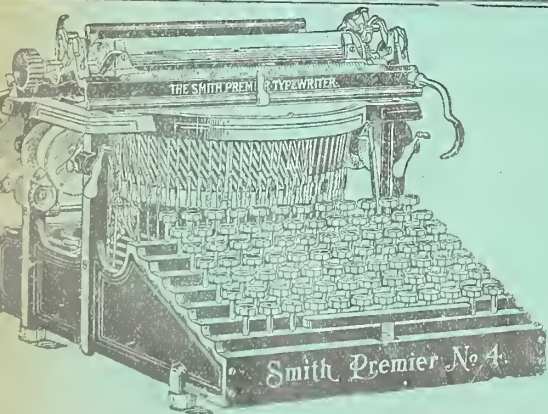 THE SMITH PREMIER TYPEWRITER.
Smith Premier No 4.